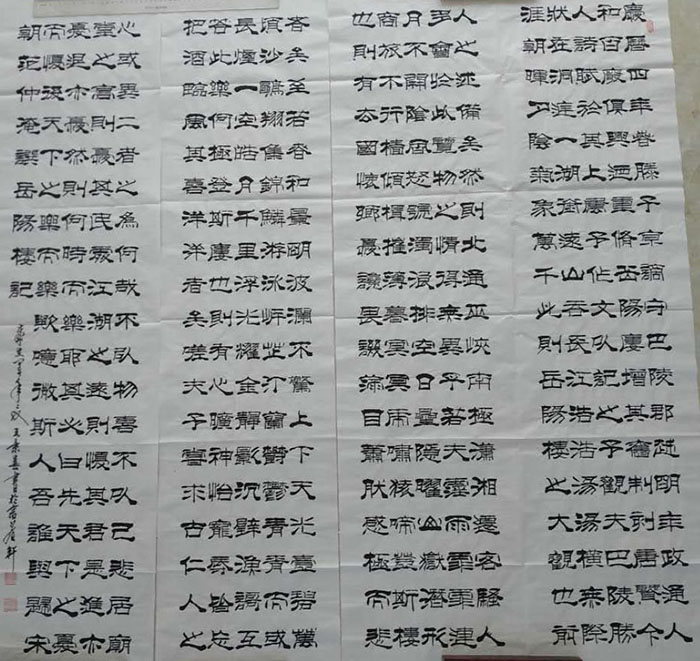 慶曆四年春滕子京謫守巴陵郡越明年政通人
和百廢俱興迺重脩岳陽樓增其舊制刻唐賢今
人詩賦於其上屬予作文以記之予觀夫巴陵勝
狀在洞庭一湖銜遠山吞長江浩浩湯湯橫無際
涯朝暉夕陰氣象萬千此則岳陽樓之大觀也前
人之述備矣然則北通巫峽南極瀟湘遷客騷人
多會於此覽物之情得無異乎若夫霪雨霏霏連
月不開陰風怒號濁浪排空日星隱曜山嶽潛形
商旅不行檣傾楫摧薄暮冥冥虎嘯猿啼登斯樓
也則有去國懷鄉憂讒畏譏滿目蕭然感極而悲
者矣至若春和景明波瀾不驚上下天光壹碧萬
頃沙鷗翔集錦鱗游泳岸芷汀蘭郁郁青青而或
長煙一空皓月千里浮光耀金靜影沉璧漁謌互
答此樂何極登斯樓也則有心曠神怡寵辱皆忘
把酒臨風其喜洋洋者矣嗟夫予嘗求古仁人之
心或異二者之為何哉不以物喜不以己悲居廟
堂之高則憂其民處江湖之遠則憂其君是進亦
憂退亦憂然則何時而樂耶其必曰先天下之憂
而憂後天下之樂而樂歟噫微斯人吾誰與歸宋
朝范仲淹撰岳陽樓記